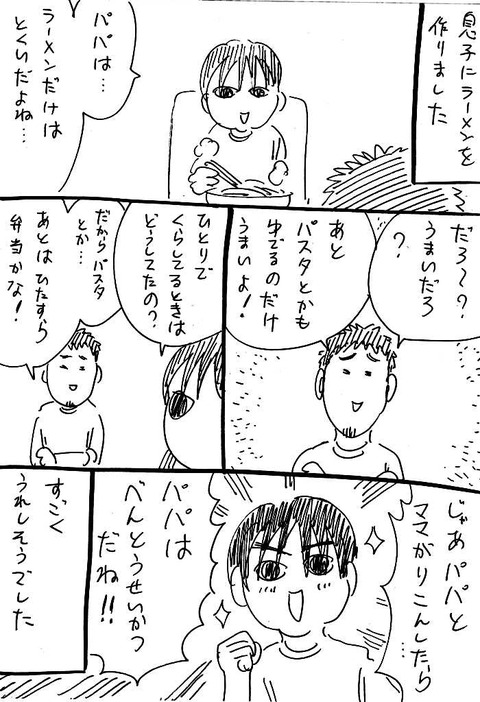 息子にラーメンを
作りました
パパは…
ラーメンだけは
とくいだよね…
だろ〜?
うまいだろ
?
あと
パスタとかも
ゆでるのだけ
うまいよ!
ひとりで
くらしてるときは
どうしてたの?
だからパスタ
とか…
あとはひたすら
弁当かな!
じゃあパパと
ママがりこんしたら…
パパは
べんとうせいかつ
だね!!
すごく
うれしそうでした